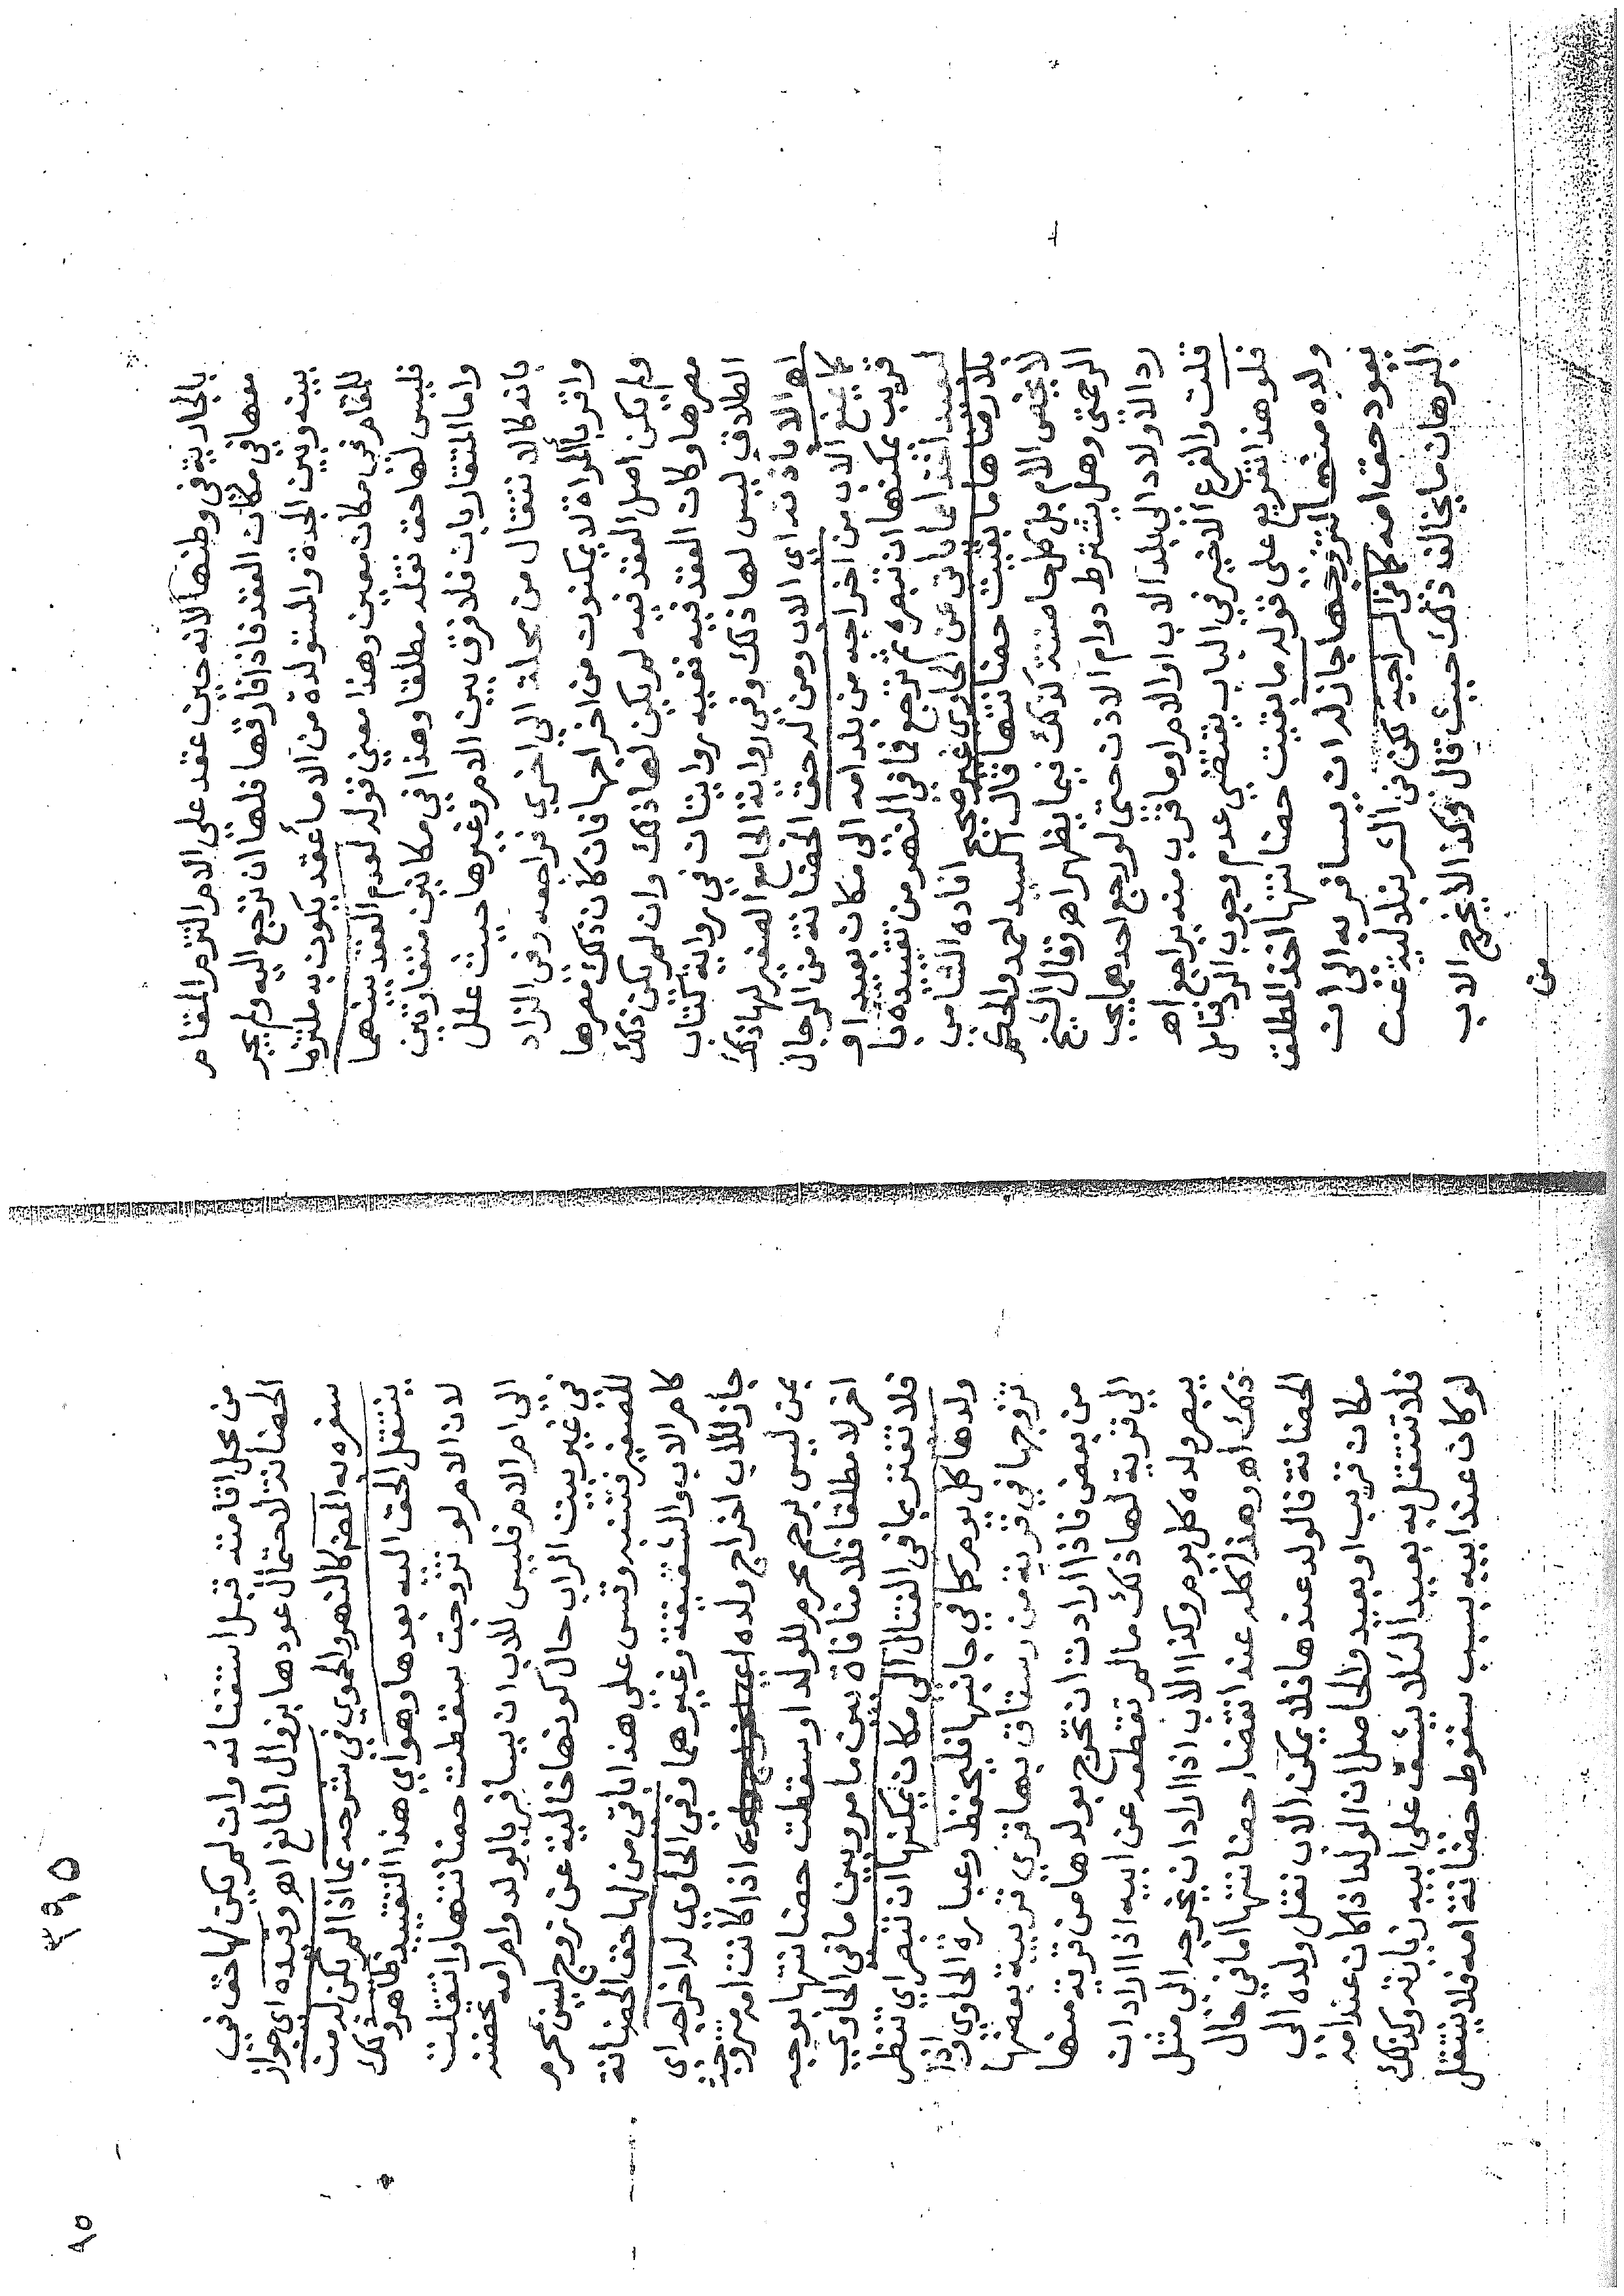 بالجارية في وطنها لانه حين عقد على الام التزم المقام
معها في مكان العقد فاذا فارقها فلها ان ترجع اليه ولم يجر
بينه وبين الجدة والمستولدة من الاماء عقد يكون به ملتزما
للمقام في مكان معين وهذا معني قوله لعدم العقد بينهما
فليس لها حق نقله مطلقا وهذا في مكانين متفاوتين
واما المتقاربان فلا فرق بين الام وغيرها حيث علل
بانه كالانتقال من محلة الي اخري فراجعه وفي الزاد
واقرباء المراة لا يمكنون من اخراجها فان كان ذلك مصرها
ولم يكن اصل العقد فيه لم يكن لها ذلك وان لم يكن ذلك
مصرها وكان العقد فيه ففيه روايتان في رواية كتاب
الطلاق ليس لها ذلك وفي رواية الجامع الصغير لها ذلك
اهـ الا باذنه اي الاب ومن له حق الحضانة من الرجال
كما يمنع الاب من اخراجه من بلد امه الى مكان بعيد او
قريب يمكنها ان تبصره ثم ترجع فما في النهر من تقييده با
لبعيد اخذا مما ياتي عن الحاوي غير صحيح افاده الشامي
بلا رضاها ما بقيت حضانتها قال السيد احمد والحكم
لا يخص الام بل كل حاضنة كذلك فيما يظهر اهـ وقال الشيخ
الرحمتي وهل يشترط دوام الاذن حتى لو رجع احدهما يجب
رد الاولاد الى بلد الاب او الام او ما قرب منه يراجع اهـ
قلت والفرع الاخير في الباب يقتضي عدم وجوب الرد فتامل
فلو هذا تفريع على قوله ما بقيت حضانتها اخذ المطلق
ولده منها لتزوجها جاز له ان يسافر به الى ان
يعود حق امه كما في السراجيه لكن في الشرنبلاليه عن
البرهان ما يخالف ذلك حيث قال وكذا لا يخرج الاب
من
٣٩٥
٩٥
من محل اقامته قبل استغنائه وان لم يكن لها حق في
الحضانة لاحتمال عودها بزوال المانع اهـ وقيده اي جواز
سفره به المصنف كالنهر والحموي في شرحه بما اذا لم يكن له من
ينتقل الحق اليه بعدها وهو اي هذا التقييد ظاهر وذلك
لان الام لو تزوجت سقطت حضانتها وانتقلت
الى ام الام فليس للاب ان يسافر بالولد وام امه تحضنه
في غير بيت الراب حال كونها خالية عن زوج ليس بمحرم
للصغير فتنبه وقس على هذا باقي من لها حق الحضانة
كام الاب والشقيقة وغيرهما وفي الحاوي له اخراجه اي
جاز للاب اخراج ولده اذا كانت امه متزوجة
بمن ليس برحم محرم للولد او سقطت حضانتها بوجه
اخر لا مطلقا فلا منافاة بين ما مر وبين ما في الحاوي
فلا تغتر بما في القتال الى مكان يمكنها ان تبصر اي تنظر
ولدها كل يوم كما في جانبها فليحفظ وعبارة الحاوي واذا
تزوجها في قرية من رستاق بها قري قريبة بعضها
من بعض فاذا ارادت ان تخرج بولدها من قرية منها
الي قرية لها ذلك ما لم تقطعه عن ابيه اذا اراد ان
يبصر ولده كل يوم وكذا الاب اذا اراد ان يخرجه الى مثل
ذلك اهـ وهذا كله عند انقضاء حضانتها اما في حال
الحضانة فالولد عندها فلا يمكن الاب نقل ولده الى
مكان قريب او بعيد والحاصل ان الولد اذا كان عند امه
فلا تنتقل به بعيدا لئلا يشق على ابيه زيارته وكذلك
لو كان عند ابيه بسبب سقوط حضانة امه فلا ينتقل